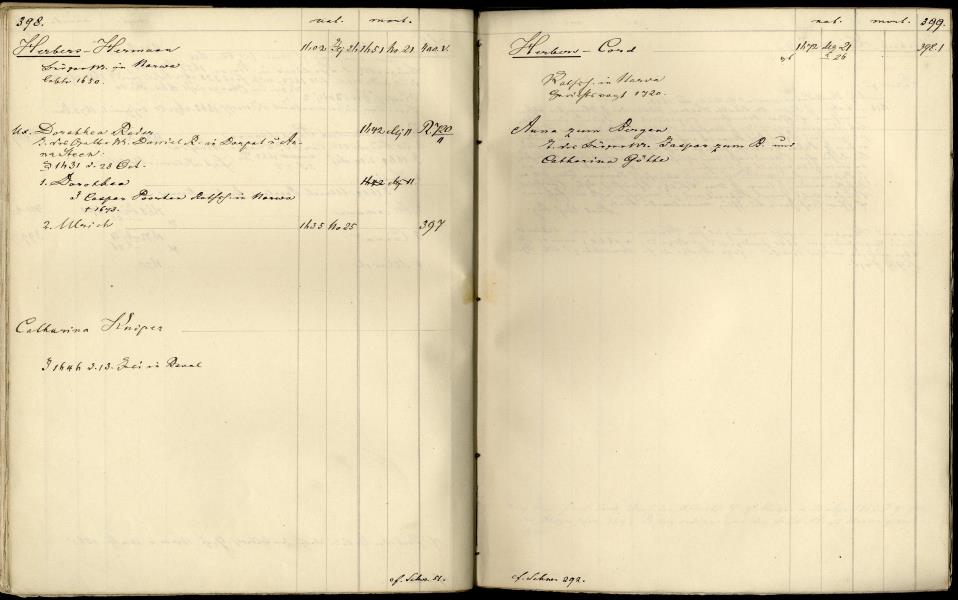 398. nat. mort.
Herbers - Hermann 1602 31 1651 No 21 400. v.
Bürger Mr. in Narwa
lebte 1650.
Ux. Dorothea Rader 1642 May 11 R. 720/11
T. des Gutbe Mr. Daniel R. in Dorpat u An-
na Steck
1631 d. 23 Oct.
1. Dorothea 1642 May 11
Caspar Poorten Rathsh. in Narwa
† 1673.
2. Ulrich 1635 No 25 397
Catharina Knieper
1646 d. 13. in Reval
cf. Schw. 51.
nat. mort. 399.
Herbers - Cord 1672 Aug 21 398.1
26
Rathsh. in Narva
Gerichtsvogt 1720.
Anna zum Bergen
T. des Bürger Mr. Jaspar zum B. und
Catharina Göthe
cf. Schwr. 292.